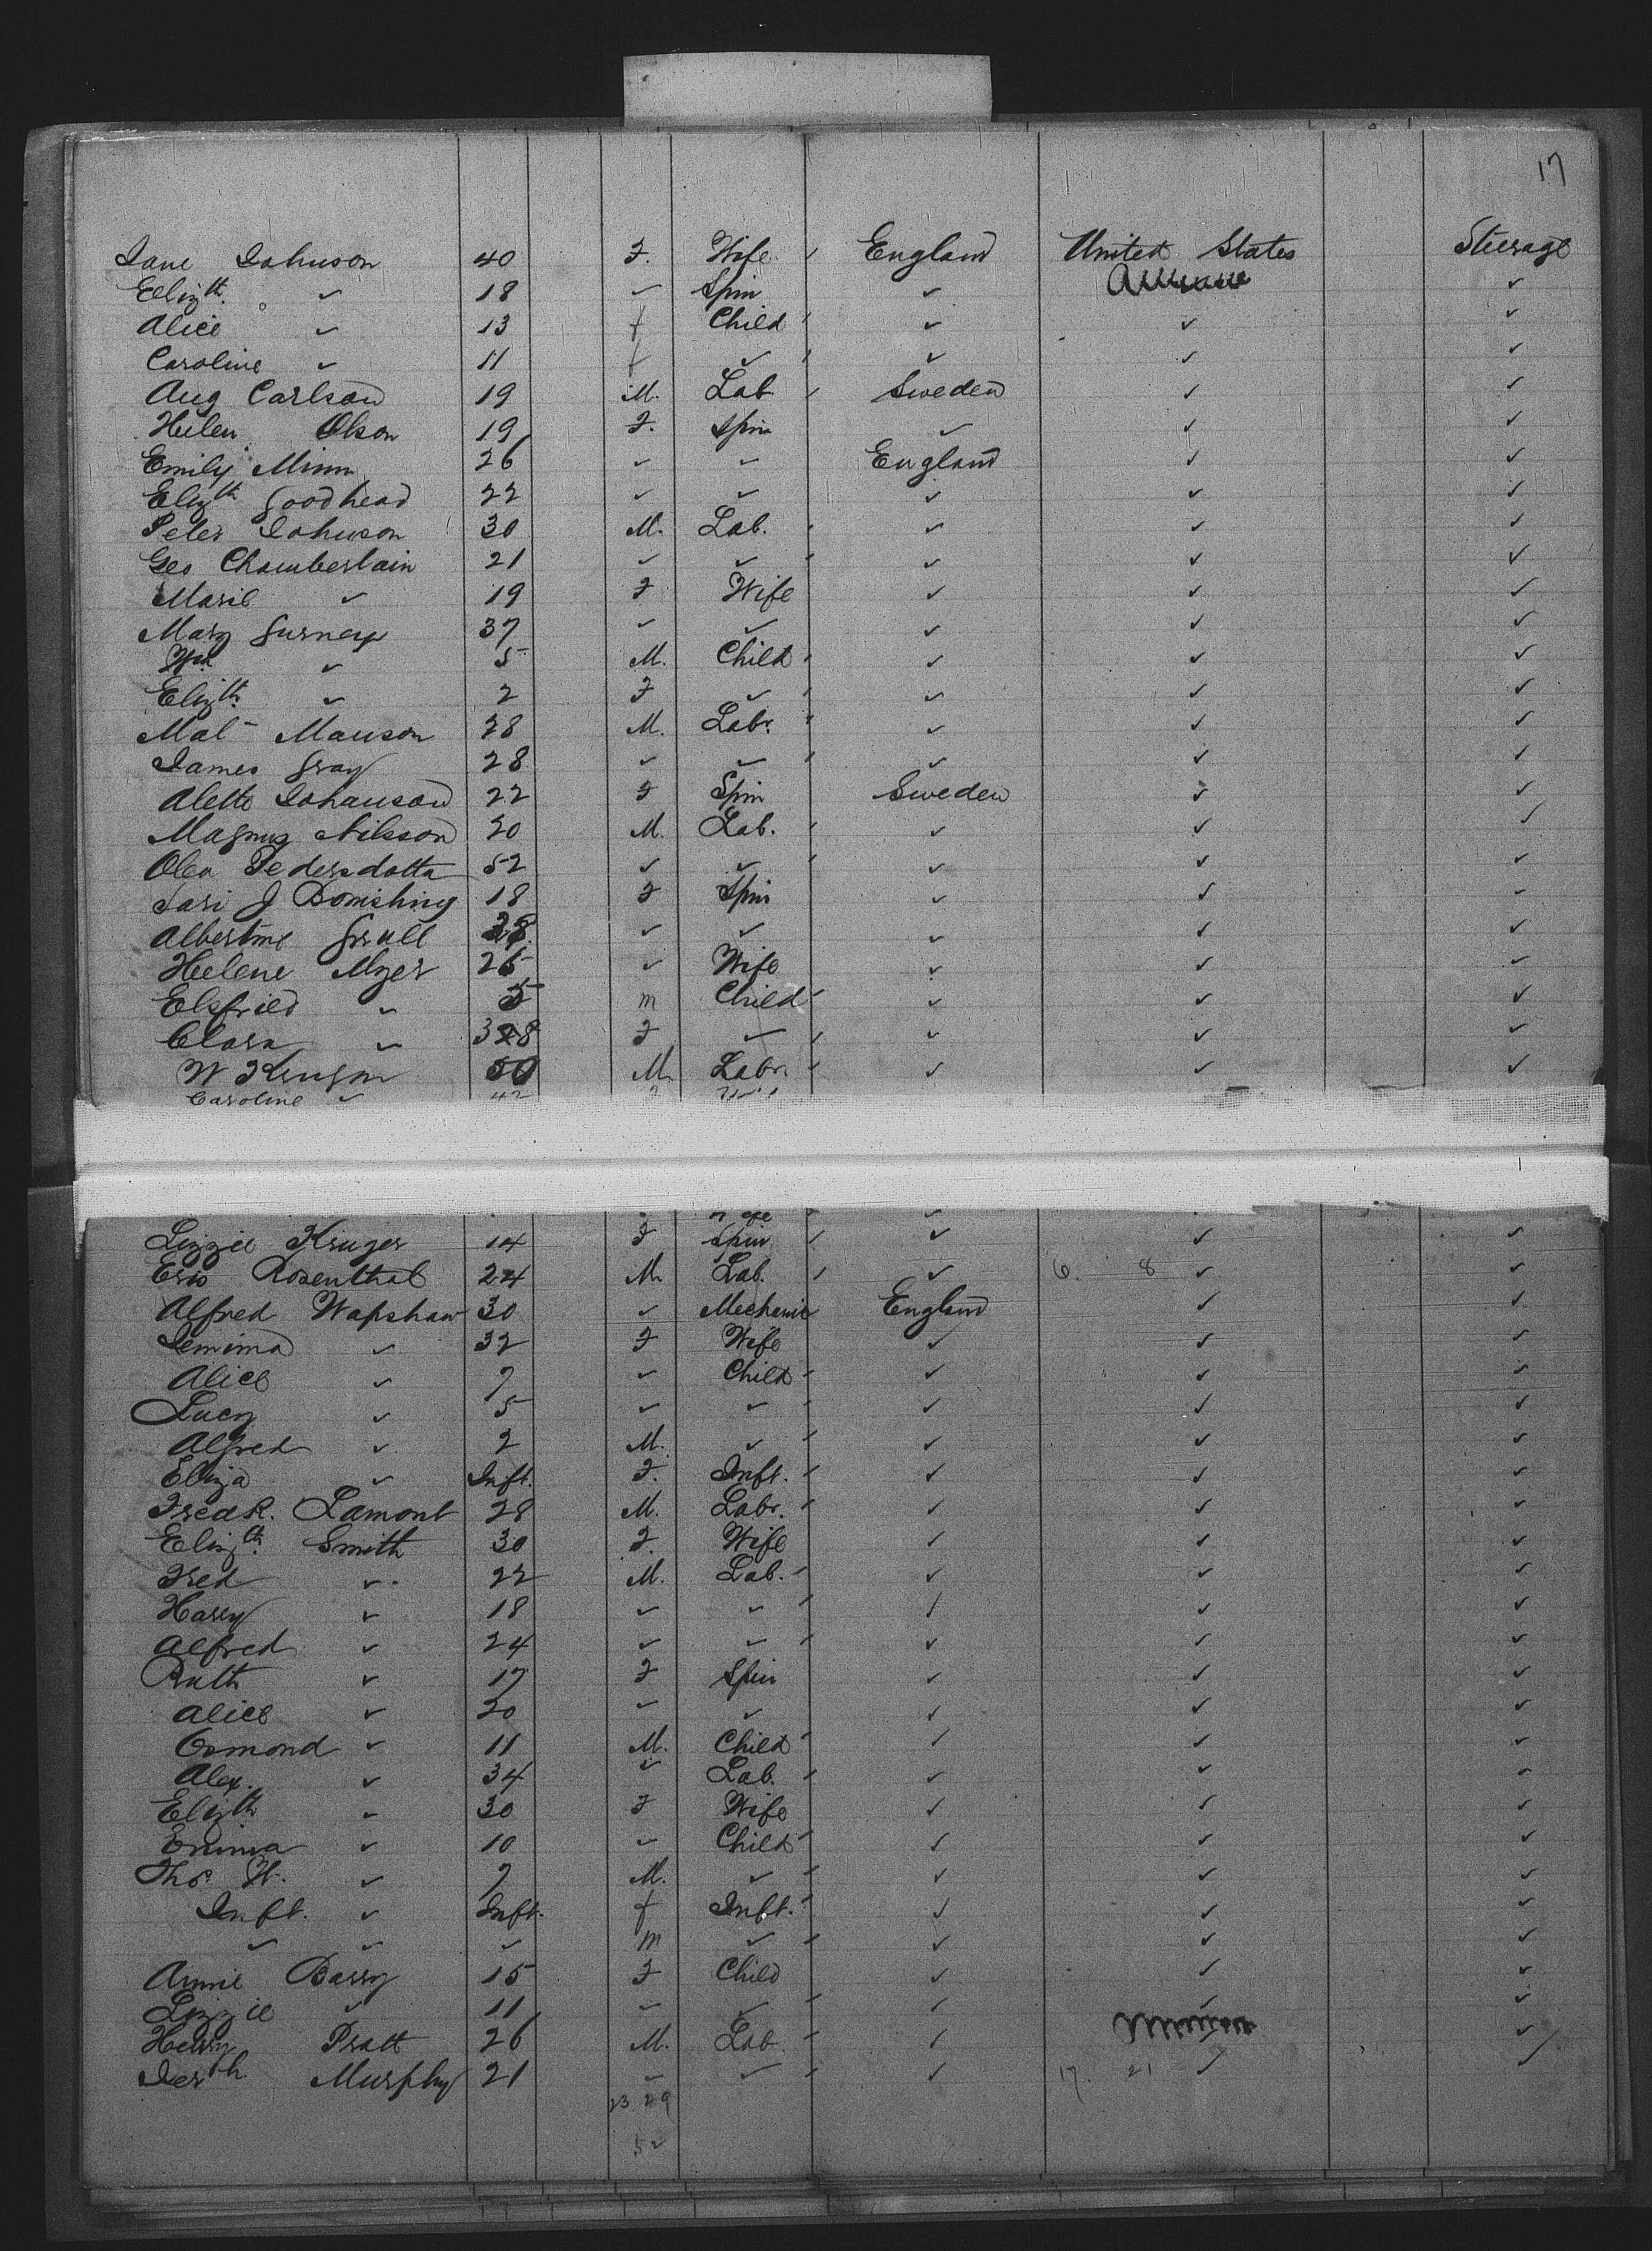 17
Jane Johnson 40 F. Wife England United States Steerage
Elizth. ✓ 18 ✓ Spin ✓ ✓
Alice ✓ 13 f Child ✓ ✓ ✓
Caroline ✓ 11 f ✓ ✓ ✓ ✓
Aug Carlson 19 M. Lab Sweden ✓ ✓
Helen Olson 19 F. Spin ✓ ✓ ✓
Emily Minn 26 ✓ ✓ England ✓ ✓
Elizth Goodhead 22 ✓ ✓ ✓ ✓ ✓
Peter Johnson 30 M. Lab. ✓ ✓ ✓
Geo Chamberlain 21 ✓ ✓ ✓ ✓ ✓
Marie ✓ 19 F Wife ✓ ✓ ✓
Mary Gurney 37 ✓ ✓ ✓ ✓ ✓
Wm ✓ 5 M. Child ✓ ✓ ✓
Elizth. ✓ 2 F ✓ ✓ ✓ ✓
Mal- Manson 28 M. Labr. ✓ ✓ ✓
James Gray 28 ✓ ✓ ✓ ✓ ✓
Alette Johanson 22 F Spin Sweden ✓ ✓
Magnus Nilsson 20 M. Lab. ✓ ✓ ✓
Olea Pedersdotta 52 ✓ ✓ ✓ ✓ ✓
J 18 F Spin ✓ ✓ ✓
Albertine 28 ✓ ✓ ✓ ✓ ✓
Helene Myer 26 ✓ Wife ✓ ✓ ✓
Elsfried ✓ 5 m Child ✓ ✓ ✓
Clara ✓ F ✓ ✓ ✓ ✓
W 50 M Labr. ✓ ✓ ✓
Caroline ✓ 42
Lizzie Kruger 14 F Spin ✓ ✓ ✓
Rosenthal 24 M. Lab. ✓ 6. 8 ✓ ✓
Alfred Wapshaw 30 ✓ Mechanic England ✓ ✓
Jemima ✓ 32 F Wife ✓ ✓ ✓
Alice ✓ 7 ✓ Child ✓ ✓ ✓
Lucy ✓ 5 ✓ ✓ ✓ ✓ ✓
Alfred ✓ 2 M. ✓ ✓ ✓ ✓
Eliza ✓ Inft. F. Inft. ✓ ✓ ✓
Fredk. Lamont 28 M. Labr. ✓ ✓ ✓
Elizth. Smith 30 F. Wife ✓ ✓ ✓
Fred ✓ 22 M. Lab. ✓ ✓ ✓
Harry ✓ 18 ✓ ✓ ✓ ✓ ✓
Alfred ✓ 24 ✓ ✓ ✓ ✓ ✓
Ruth ✓ 17 F Spin ✓ ✓ ✓
Alice ✓ 20 ✓ ✓ ✓ ✓ ✓
Osmond ✓ 11 M. Child ✓ ✓ ✓
Alex. ✓ 34 ✓ Lab. ✓ ✓ ✓
Elizth ✓ 30 F Wife ✓ ✓ ✓
Emma ✓ 10 ✓ Child ✓ ✓ ✓
Thos W. ✓ 7 M. ✓ ✓ ✓ ✓
Inft. ✓ Inft. f Inft. ✓ ✓ ✓
✓ ✓ ✓ m ✓ ✓ ✓ ✓
Annie Barry 15 F Child ✓ ✓ ✓
Lizzie ✓ 11 ✓ ✓ ✓ ✓ ✓
Henry Pratt 26 M. Lab. ✓ ✓
Murphy 21 ✓ ✓ ✓ 17. 21 ✓ ✓
23 29
52